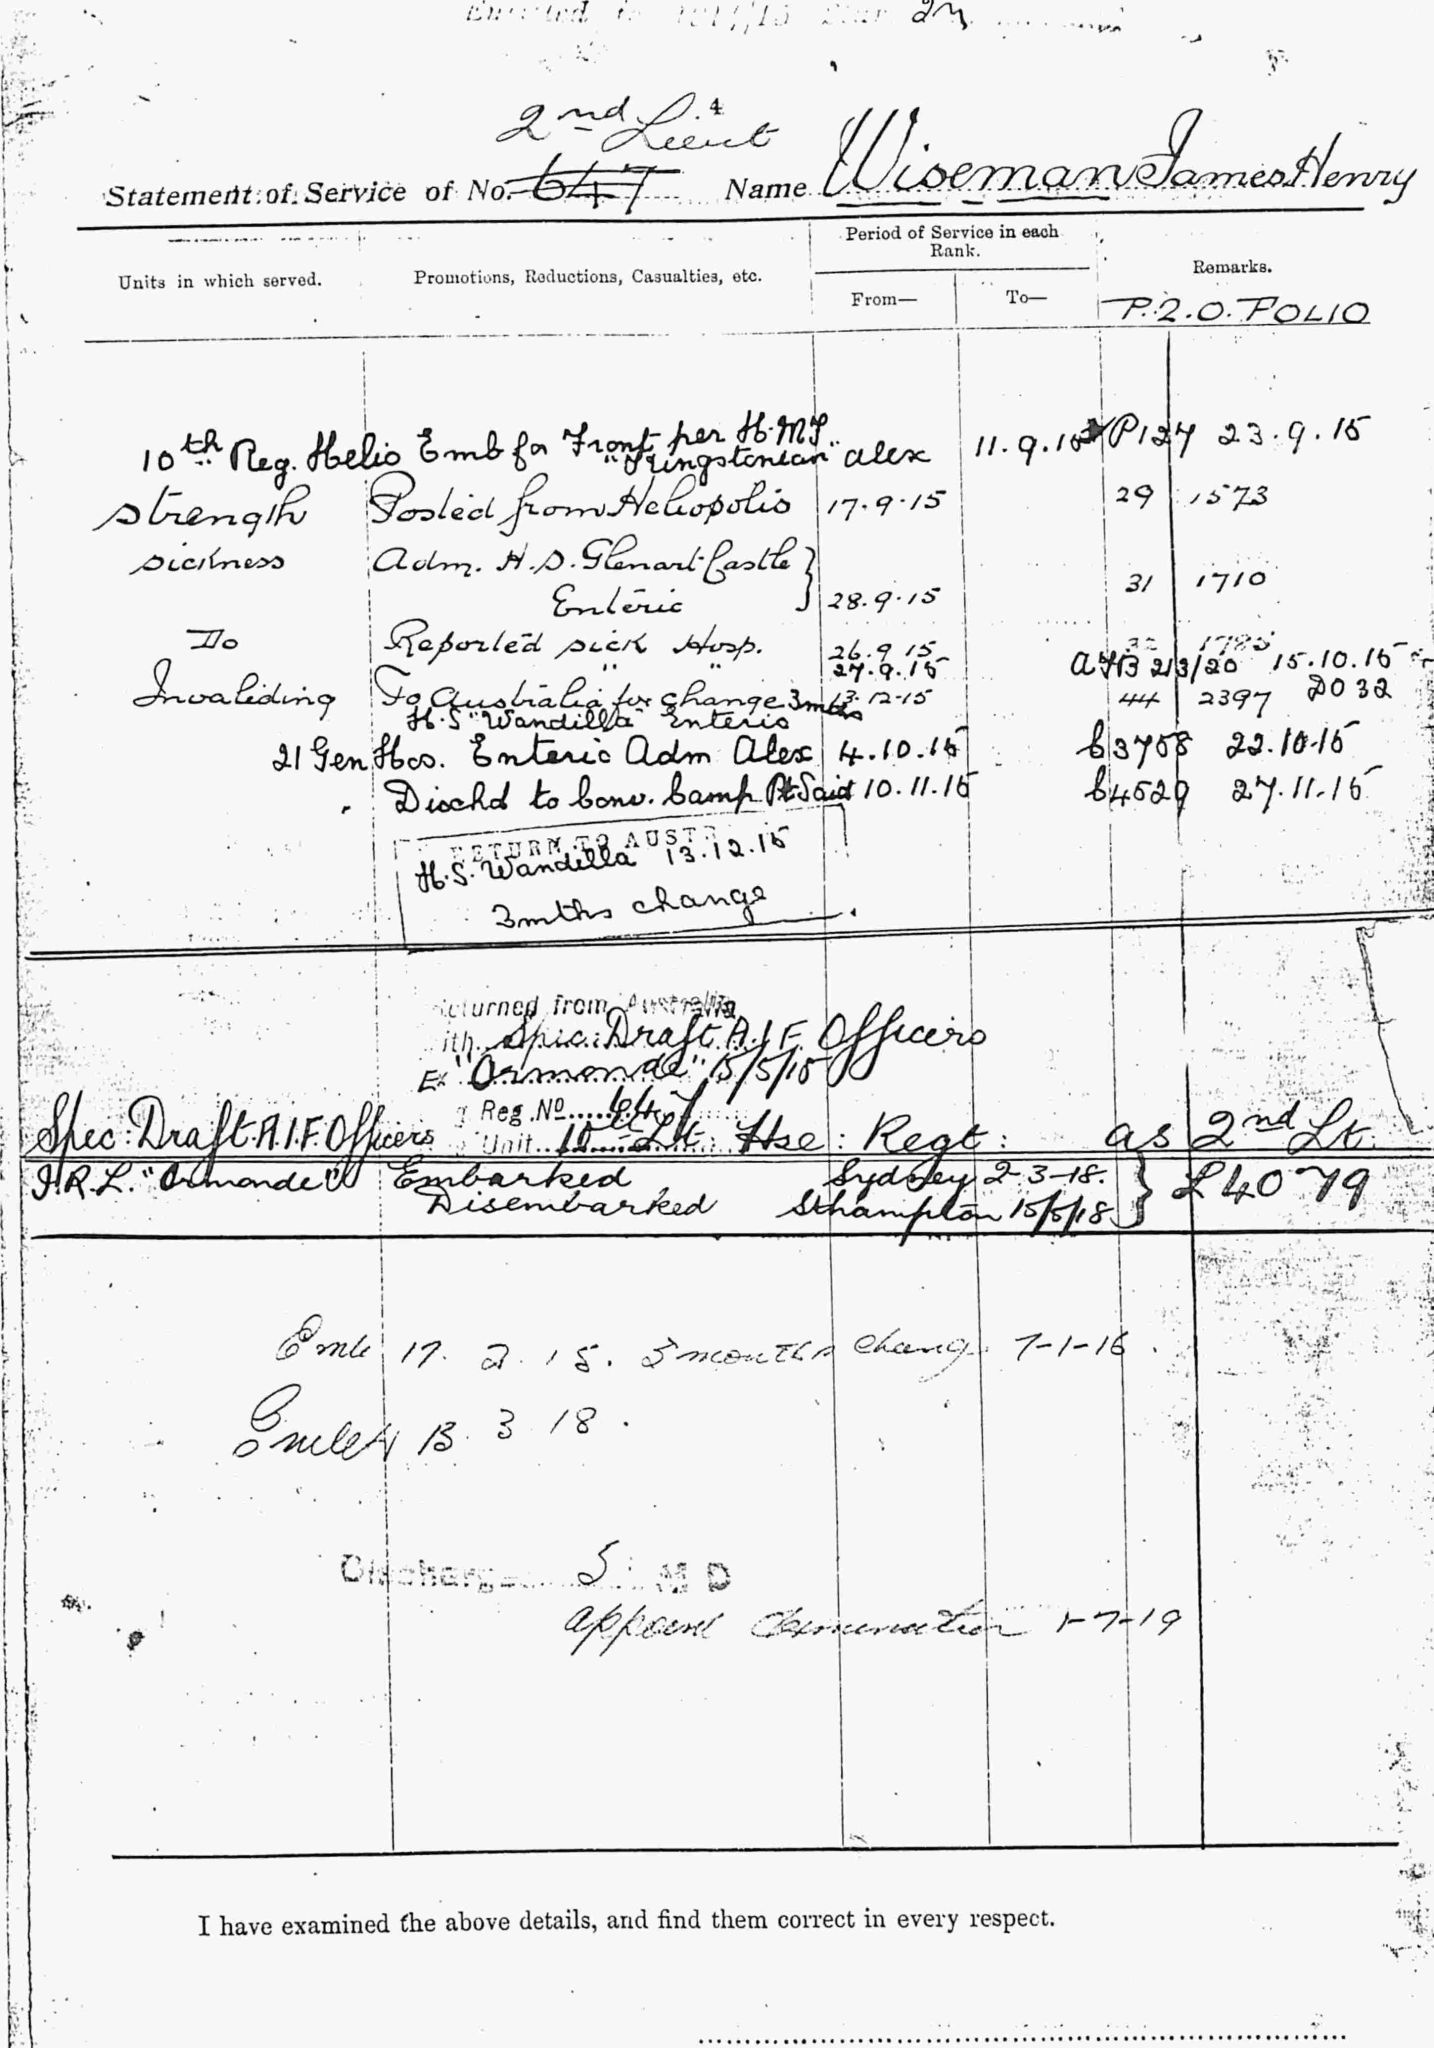 Entitled to 1914/15 Star
4
2nd Lieut
Statement of Service of No. 647 Name Wiseman James Henry
Units in which served.
Promotions, Reductions, Casualties, etc.
Period of Service in each Rank.
From—
To—
Remarks.
P.2.O. FOLIO
10th Reg. Helio Emb for Front per H.M.T. "Kingstonian" Alex 11.9.15 P127 23.9.15
Strength Posted from Heliopolis 17.9.15 29 1573
Sickness Adm. H.S. Glenart Castle
Enteric 28.9.15 31 1710
Do Reported sick Hosp. 26.9.15 32 1785
" " 27.9.15 A&B 213/20 15.10.15
Invaliding To Australia for change 3mths 13.12.15 44 2397 DO 32
H.S "Wandilla" Enteric
21 Gen Hos. Enteric Adm Alex 4.10.15 B3758 22.10.15
Dischd to Conv. Camp Pt. Said 10.11.15 B4529 27.11.15
RETURN TO AUST
H.S. Wandilla 13.12.15
3mths change
Returned from Australia
with Spec. Draft A.I.F. Officers
Ex "Ormonde" 15/5/18
Reg. No 647
Spec: Draft A.I.F. Officers Unit 10th Lt Hse: Regt: as 2nd Lt.
"Ormonde" Embarked Sydney 2-3-18. L4079
Disembarked Sthampton 15/5/18
Emb 17. 2. 15. 3 months change 7-1-16.
3 18.
Discharge 5 M D
appoint termination 1-7-19
I have examined the above details, and find them correct in every respect.